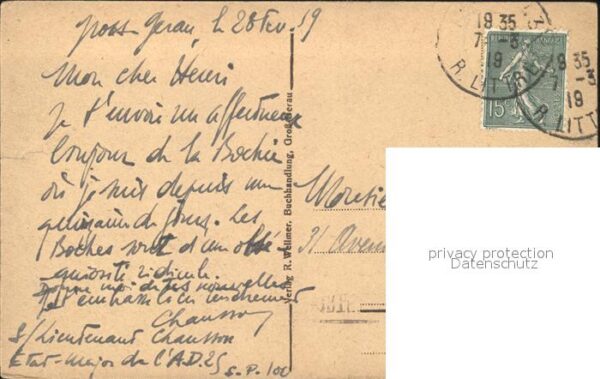 Gross Gerau, le 28 Fév. 19
Mon cher Henri
Je t'envoie un affectueux
bonjour de la Bochie
où je suis depuis une
quinzaine de jours. Les
Boches sont d'une obsé-
quiosité ridicule.
Donne moi de tes nouvelles
Je t'embrasse bien
Chausson
S/Lieutenant Chausson
Etat-Major de l'A.D. 25
S.P. 100
Verlag R. Wellmer, Buchhandlung, Großgerau
Monsieur
31 Avenue
19 35
7 -3
19
R. LITTRE
15c
19 35
7 -3
19
R. LITT
privacy protection
Datenschutz